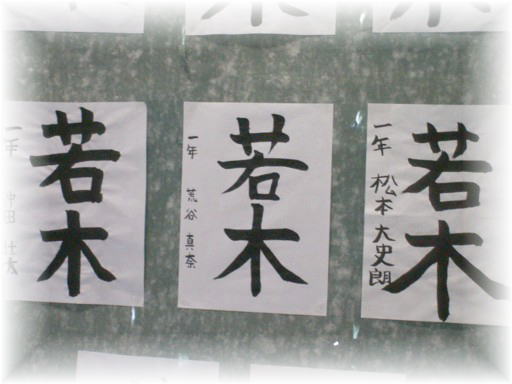 若木
一年 松本大史朗
若木
一年 荒谷真奈
若木
一年